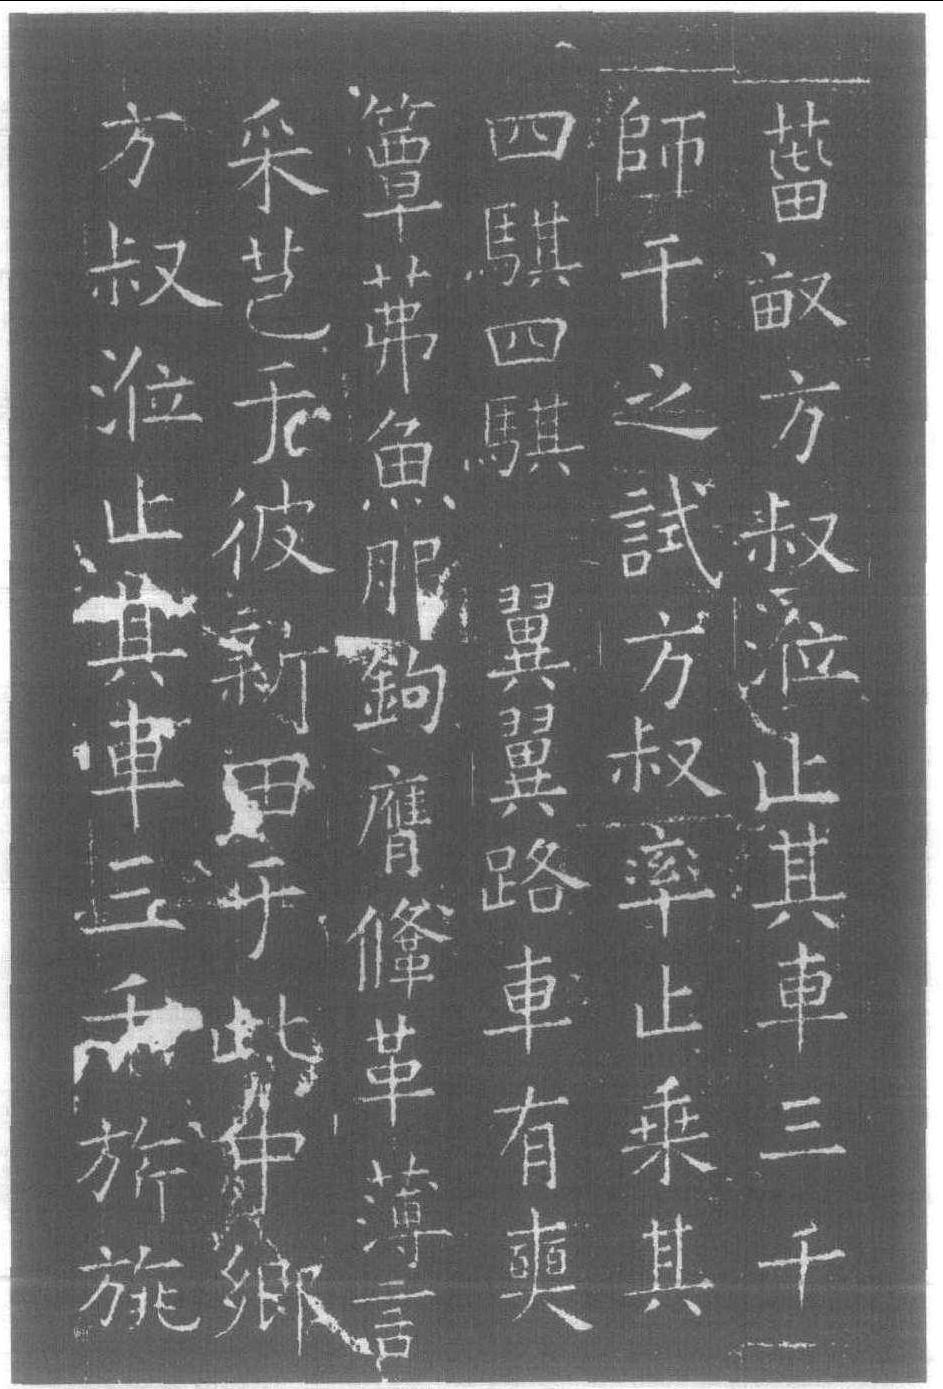 菑畝方叔涖止其車三千
師干之試方叔率止乗其
四騏四騏翼翼路車有奭
簟茀魚服鉤膺鞗革薄言
采芑于彼新田于此中鄉
方叔涖止其車三千旂旐